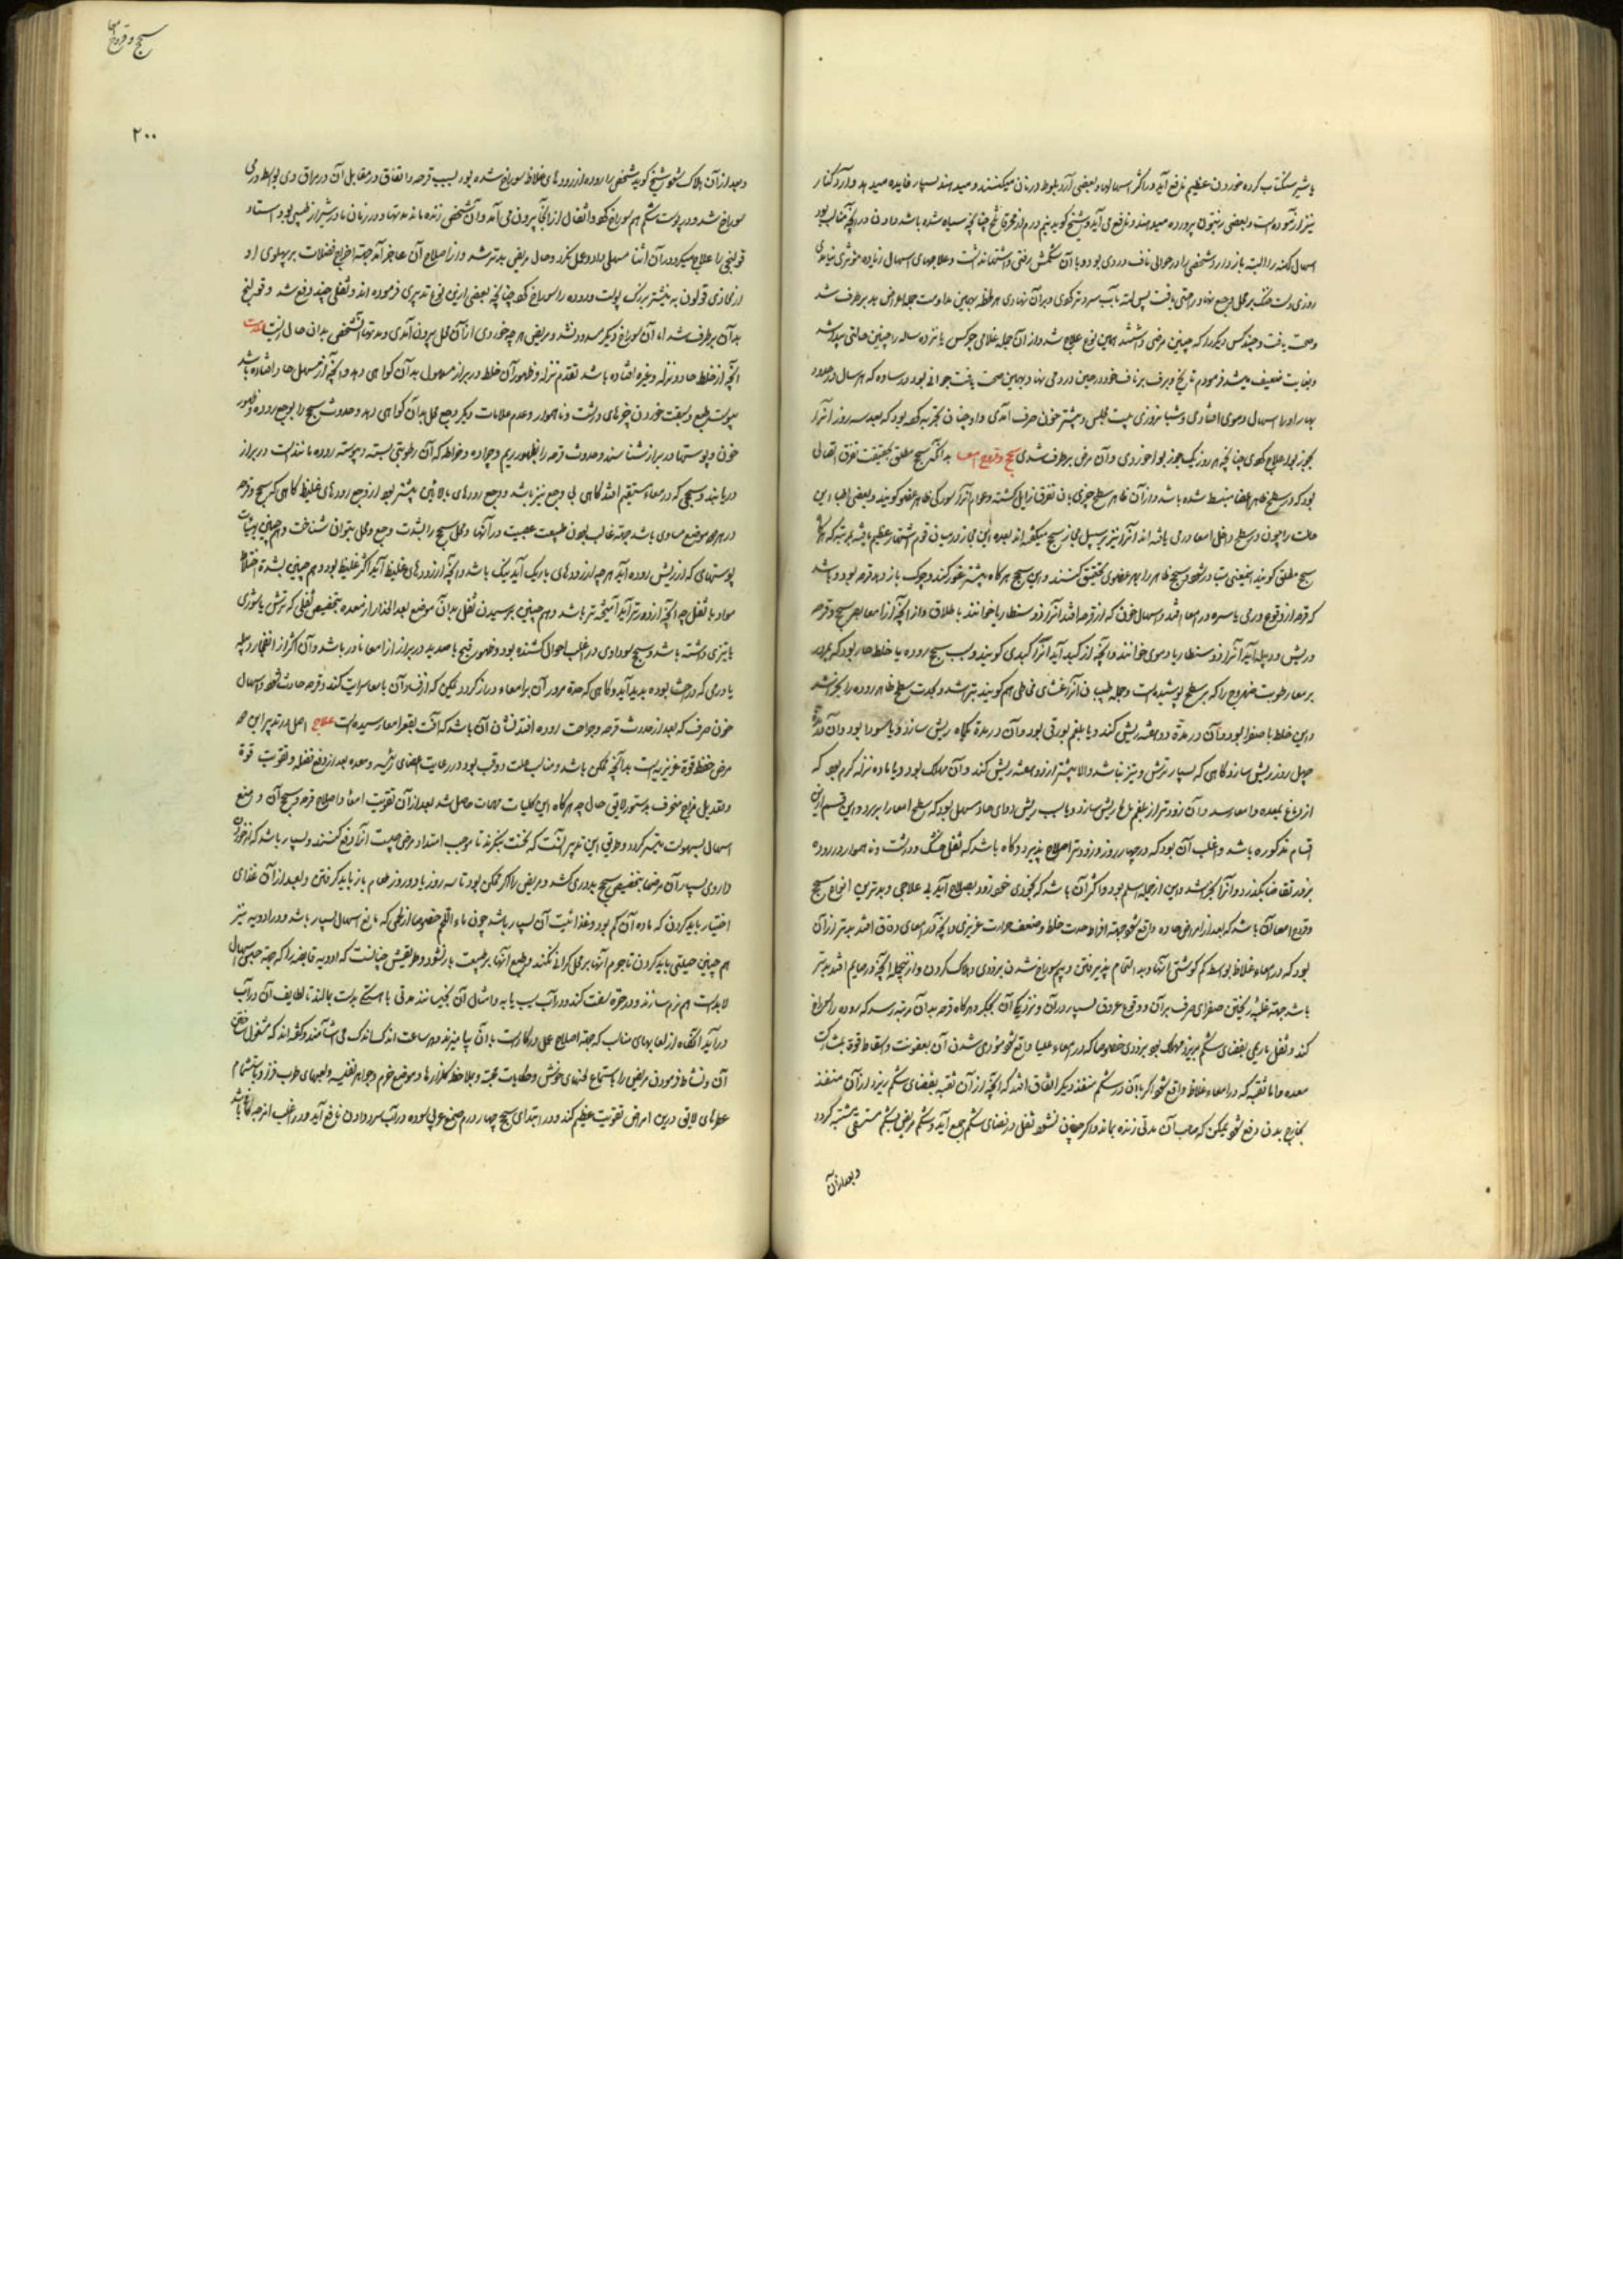 با شیر سکنتاب کرده خوردن عظیم نافع آید و در اکثر اسهالها و بعضی آرد بلوط در نان میکنند و میدهند بسیار فایده میدهد و آرد کنار
نیز آزموده است و بعضی زیتون پرورده میدهند و نافع می آید و شیخ گوید نیم درم از محرقا چنانچه سیاه شده باشد دادن در آنچه مناسب بود
اسهال کهنه را البته باز دارد و شخصی را در حوالی ناف دردی بود و با آن شکمش رفتی و اشتها نداشت و علاجهای اسهال زیاده موثر نمی
روزی دست خنک بر محل وجع نهاد راحتی یافت پس لته بآب سرد تر کردی و بر آن نهادی هر لحظه بهمین مداومت جمله اعراض بد برطرف شد
وصحت یافت و چند کس دیگر را که چنین مرضی داشتند بهمین نوع علاج شد و از آن جمله غلامی چرکس پانزده ساله را چنین حالتی پیدا شد
وبغایت ضعیف میشد فرمودم تا یخ و برف بر ناف خود در حین درد می نهاد و بهمین صحت یافت جوانی بود در ساوه که هر سال در حدود
بهار او را اسهال دموی افتادی و شبانروزی بیست مجلس و بیشتر خون صرف آمدی و او چنان تجربه کرده بود که بعد سه روز آنرا
بجوز بوا علاج کردی چنانچه هر روز یک جوز بوا خوردی و آن مرض برطرف شدی سحج و قروح امعا بدانکه سحج مطلق بحقیقت تفرق اتصالی
بود که در سطح ظاهر اعضا منبسط شده باشد و از آن ظاهر سطح چیزی بآن تفرق زایل گشته و عوام آنرا سودگی ظاهر عضو گویند و بعضی اطبا این
حالت را چون در سطح داخلی امعا در می یافته اند آنرا نیز بر سبیل مجاز سحج میگفته اند بعده این مجاز در میان قوم اشتهار عظیم یافته بمرتبه که هرگاه
سحج مطلق گویند همین معنی متبادر شود و سحج ظاهر را بهر عضوی تحقیق کنند و این سحج هرگاه بیشتر غور کند و چرک باز دهد قرحه بود و باشد
که قرحه از وقوع ورمی یا سره در امعا افتد و اسهال خون که از قرحه افتد آنرا ذوسنطاریا خوانند باطلاق و از آنچه از امعا بهر سحج و قرحه
و ریش و دبیله آید آنرا ذوسنطاریا دموی خوانند و آنچه از کبد آید آنرا کبدی گویند و سبب سحج روده یا خلط حار بود که بمرور
بر معا رطوبت صهروج را که بر سطح پوشیده است و جمله طبیبان آنرا غشای مخاطی هم گویند بتراشد و بحدت سطح ظاهر روده را بخراشد
و این خلط یا صفرا بود و آن در مدة دو هفته ریش کند و یا بلغم بورقی بود و آن در مدة یکماه ریش سازد و یا سودا بود و آن در مدة
چهل روز ریش سازد و گاهی که بسیار ترش و تیز باشد و الا بیشتر از دو هفته ریش کند و آن مهلک بود و یا ماده نزله گرم بود که
از دماغ بمعده و امعا رسد و آن زودتر از بلغم مالح ریش سازد و یا سبب ریش دوای حاد مسهل بود که سطح امعا را ببرد و این قسم از این
اقسام مذکوره باشد و اغلب آن بود که در چهار روز و زودتر اصلاح پذیرد و گاه باشد که ثفل خشک و درشت و ناهموار در روده
بزور تقاضا بگذرد و آنرا بخراشد و این از جمله اسلم بود و اکثر آن باشد که بخودی خود زود بصلاح آید بی علاجی و بدترین انواع سحج
و قروح امعا آن باشد که بعد از امراض حاده واقع شود جهته افراط حدت خلط و ضعف حرارت غریزی و آنچه در امعای دقاق افتد بدتر از آن
بود که در امعاء غلاظ بواسطه کم گوشتی آنها و بد التحام پذیرفتن و سوراخ شدن بزودی و هلاک کردن و از این جمله آنچه در صایم افتد بدتر
باشد جهته غلبه ریختن صفرای صرف بر آن و وقوع عروق بسیار در آن و نزدیکی آن بجگر و هرگاه قرحه بدان مرتبه رسد که روده را سوراخ
کند و ثفل تا ریمی بفضای شکم بریزد مهلک بود بزودی خصوصا که در امعاء علیا واقع شود موذی شدن آن بعفونت و اسقاط قوة بمشارکت
معده و اما ثقبه که در امعاء غلاظ واقع شود اگر با آن در شکم منفذ دیگر اتفاق افتد که آنچه از آن ثقبه بفضای شکم ریزد از آن منفذ
بخارج بدن دفع شود ممکن که صاحب آن مدتی زنده بماند و اگر چنان نشود ثفل در فضای شکم جمع آید و شکم مریض بشکم مستسقی مشتبه گردد
و بعد از آن
سحج و قروح امعا
۲۰۰
و بعد از آن هلاک شود شیخ گوید شخصی را روده از روده های غلاظ سوراخ شده بود بسبب قرحه و اتفاق در مقابل آن در مراق وی بواسطه ورمی
سوراخ شد و در پوست شکم هم سوراخ کرد و اثفال از آنجا بیرون می آمد و آن شخص زنده ماند مدتها و در زمان ما در شیراز طبیبی بود استاد
قولنجی را علاج میکرد در آن اثنا مسهلی داد و عمل نکرد و حال مریض بدتر شد و از اصلاح آن عاجز آمد جهته اخراج فضلات بر پهلوی او
از محاذی قولون به نیشتر بزرگ پوست و روده را سوراخ کرد چنانچه بعضی از این نوع تدبیری فرموده اند و ثفلی چند دفع شد و قولنج
بدآن برطرف شد اما آن سوراخ دیگر مسدود نشد و مریض هر چه خوردی از آن محل بیرون آمدی و مدتها آن شخص بدان حال زیست علامت
آنچه از خلط حاد و نزله و غیره افتاده باشد تقدم نزله و ظهور آن خلط در براز معمول بدان گواهی دهد و آنچه از مسهل حاد افتاده باشد
یبوست طبع و سبقت خوردن چیزهای درشت و ناهموار و عدم علامات دیگر و وجع محل بدان گواهی دهد و حدوث سحج را بوجع روده و ظهور
خون و پوستها در براز شناسند و حدوث قرحه را بظهور ریم و جراده و خراطه که آن رطوبتی بسته و پیوسته روده مانندست در براز
دریابند و سحجی که در معاء مستقیم افتد گاهی بی وجع نیز باشد و وجع روده های بالایین بیشتر بود از وجع روده های غلیظ گاهی که سحج و قرحه
در هر دو موضع مساوی باشد جهته غالب بودن طبیعت عصبیت در آنها و محل سحج را بشدت وجع و محل بتوان شناخت و هم چنین بهیات
پوستهای که از ریش روده آید هر چه از روده های باریک آید تنک باشد و آنچه از روده های غلیظ آید اکثر غلیظ بود و هم چنین بشدة اختلاط
مواد با ثفل چه آنچه از دورتر آید آمیخته تر باشد و هم چنین برسیدن ثفل بدان موضع بعد انحدار از معده بتخصیص ثفلی که ترش یا شوری
یا تیزی داشته باشد و سحج سوداوی در اغلب احوال کشنده بود و ظهور قیح با صدید در براز از امعا نادر باشد و آن اکثر از انفجار دبیله
یا ورمی که در احشا بوده بدید آید و گاهی که مدة مرور آن بر امعاء دراز گردد ممکن که از فساد آن بامعا سرایت کند و قرحه حادث شود و اسهال
خون صرف که بعد از حدوث قرحه و جراحت روده افتد نشان آن باشد که آفت بقعر امعا رسیده است علاج اصل در تدبیر این هر
مرض حفظ قوة غریزیه است بدانچه ممکن باشد و مناسب علت و وقت بود در رعایت اعضای رئیسه و معده بعد از دفع فضله و تقویت قوة
و تعدیل مزاج منحرف بدستور لایق حال چه هرگاه این کلیات مهمات حاصل شد بعد از آن تقویت امعاء و اصلاح قرحه و سحج آن و منع
اسهال بسهولت میسر گردد و طریق این تدبیر آنست که نخست بنگرند تا موجب امتداد مرض چیست آنرا دفع کنند و بسیار باشد که از خوردن
داروی بسیار آن مرضها بتخصیص سحج بدوری کشد و مریض را اگر ممکن بود تا سه روز یا دو روز طعام باز باید گرفتن و بعد از آن غذای
اختیار باید کردن که ماده آن کم بود و غذائیت آن بسیار باشد چون ماء اللحم خصوصا از لحمی که مانع اسهال بسیار باشد و در ادویه نیز
هم چنین حیلتی باید کردن تا جرم آنها بر محل گرانی نکند و طبع آنها بر طبیعت بار نشود و طریقش چنانست که ادویه قابضه را که جهته حبس اسهال
لابدست هم نرم سازند و در خرقه سفت کنند و در آب سیب یا به و امثال آن بخیسانند مدتی یا اسکی بدست بمالند تا لطایف آن در آب
درآید آنگاه از لعابهای مناسب که جهته اصلاح محل درکارست با آن بیامیزند و هر ساعت اندک اندک می آشامند و گفته اند که مشغول ساختن
آن و نشاط فرمودن مریض را باستماع لحنهای خوش و حکایات محبت و ملاحظه گلزارها و موضع خرم و جواهر نفیسه و لعبهای طرب فزا و باستشمام
عطرهای لایق درین امراض تقویت عظیم کند و در ابتدای سحج چهار درم صمغ عربی سوده در آب سرد دادن نافع آید و در اغلب امزجه کافی باشد